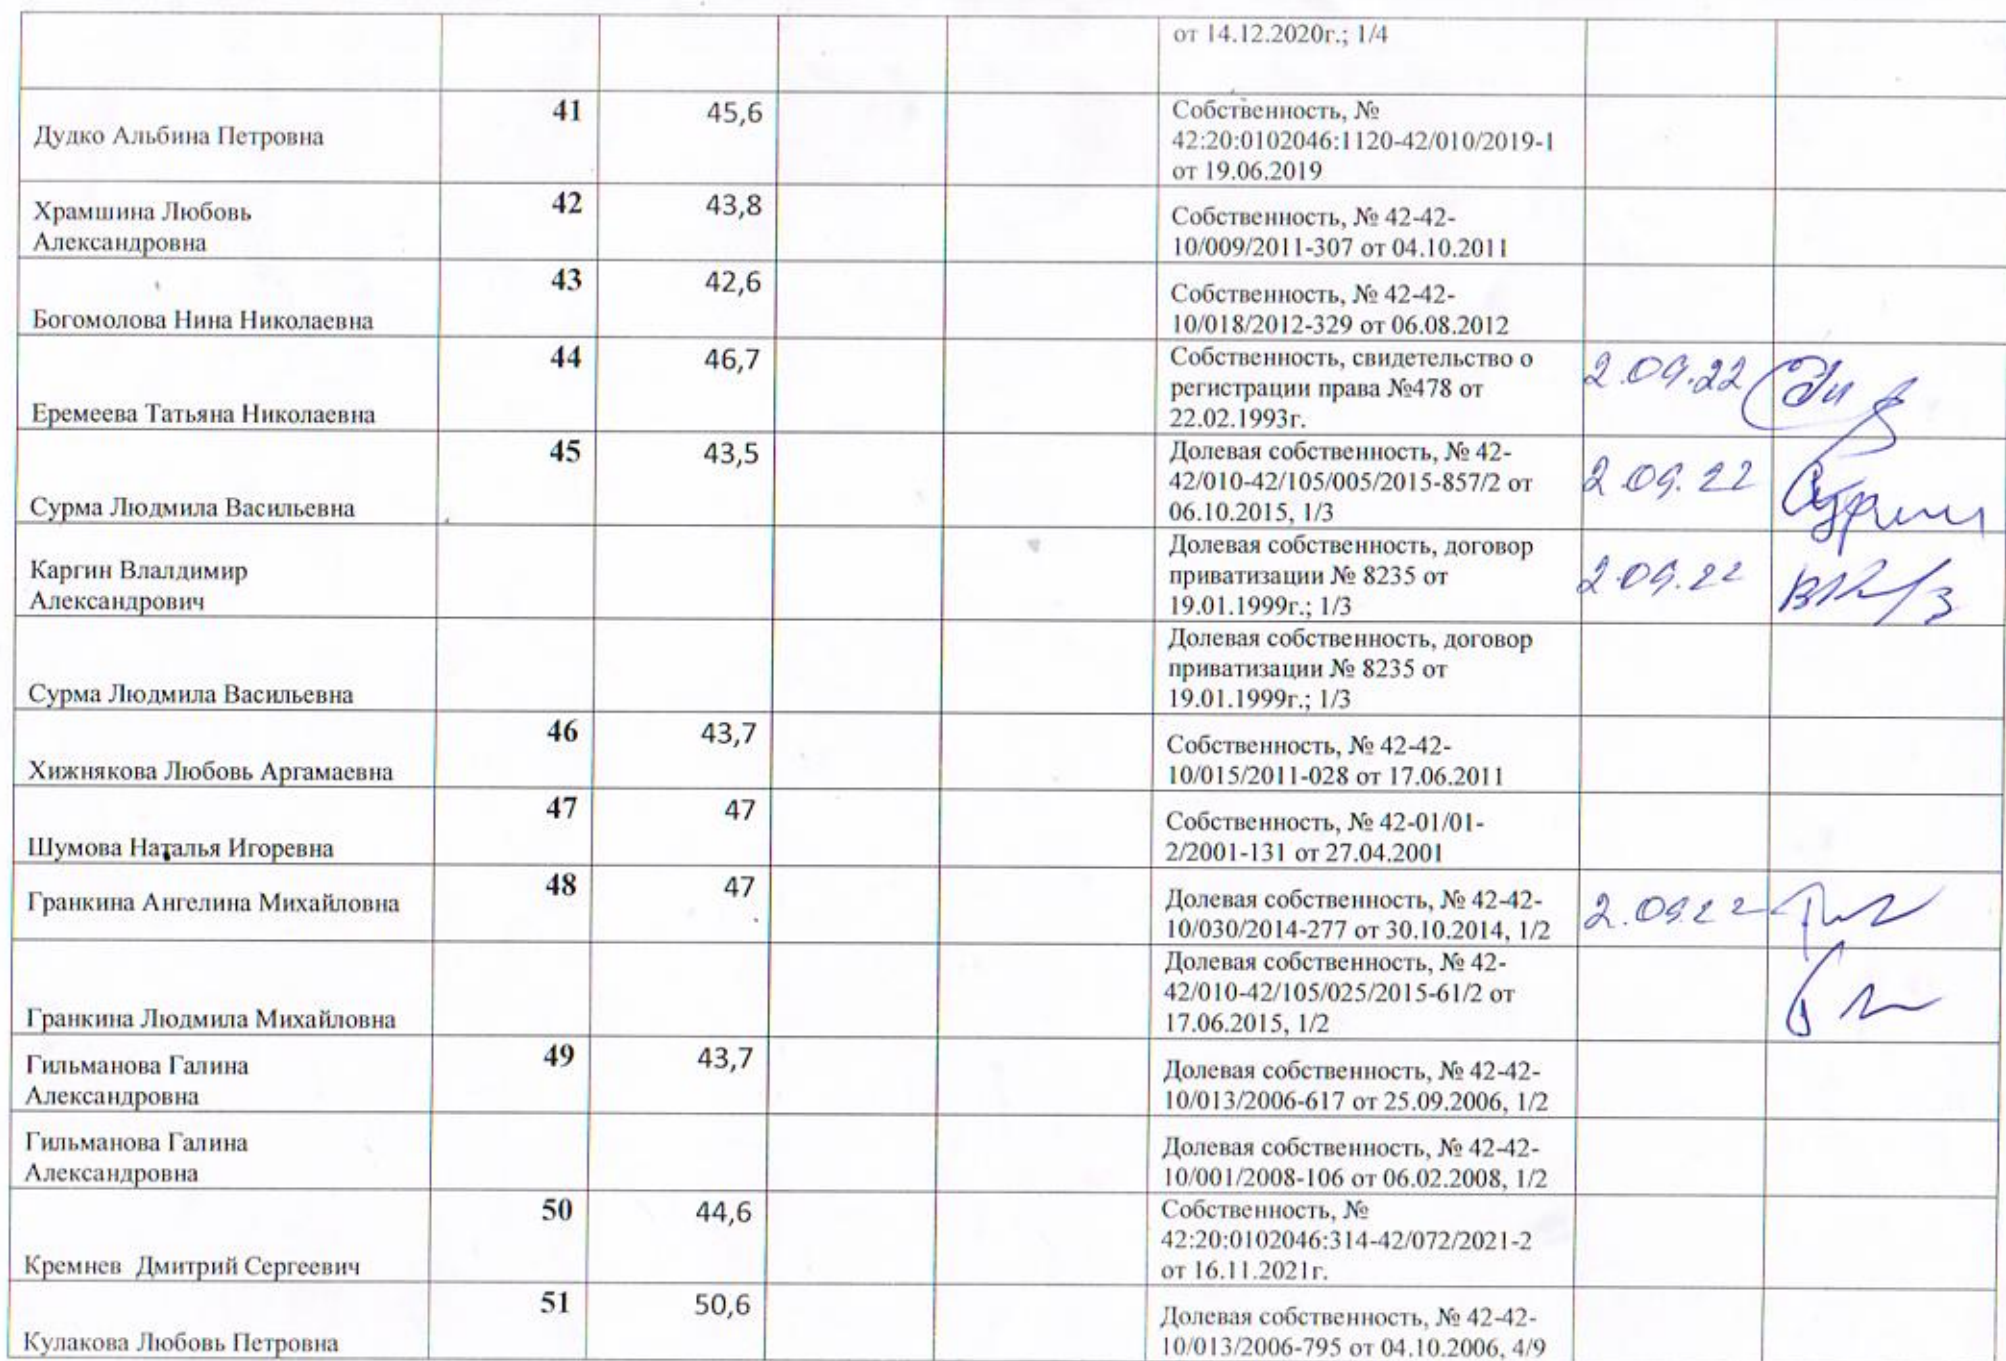 от 14.12.2020г.; 1/4
Дудко Альбина Петровна
41
45,6
Собственность, №
42:20:0102046:1120-42/010/2019-1
от 19.06.2019
Храмшина Любовь
Александровна
42
43,8
Собственность, № 42-42-
10/009/2011-307 от 04.10.2011
Богомолова Нина Николаевна
43
42,6
Собственность, № 42-42-
10/018/2012-329 от 06.08.2012
Еремеева Татьяна Николаевна
44
46,7
Собственность, свидетельство о
регистрации права №478 от
22.02.1993г.
2.09.22
Сурма Людмила Васильевна
45
43,5
Долевая собственность, № 42-
42/010-42/105/005/2015-857/2 от
06.10.2015, 1/3
2.09.22
Каргин Влалдимир
Александрович
Долевая собственность, договор
приватизации № 8235 от
19.01.1999г.; 1/3
2.09.22
Сурма Людмила Васильевна
Долевая собственность, договор
приватизации № 8235 от
19.01.1999г.; 1/3
Хижнякова Любовь Аргамаевна
46
43,7
Собственность, № 42-42-
10/015/2011-028 от 17.06.2011
Шумова Наталья Игоревна
47
47
Собственность, № 42-01/01-
2/2001-131 от 27.04.2001
Гранкина Ангелина Михайловна
48
47
Долевая собственность, № 42-42-
10/030/2014-277 от 30.10.2014, 1/2
2.09.22
Гранкина Людмила Михайловна
Долевая собственность, № 42-
42/010-42/105/025/2015-61/2 от
17.06.2015, 1/2
Гильманова Галина
Александровна
49
43,7
Долевая собственность, № 42-42-
10/013/2006-617 от 25.09.2006, 1/2
Гильманова Галина
Александровна
Долевая собственность, № 42-42-
10/001/2008-106 от 06.02.2008, 1/2
Кремнев Дмитрий Сергеевич
50
44,6
Собственность, №
42:20:0102046:314-42/072/2021-2
от 16.11.2021г.
Кулакова Любовь Петровна
51
50,6
Долевая собственность, № 42-42-
10/013/2006-795 от 04.10.2006, 4/9